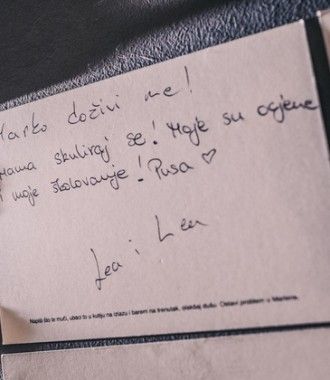 Marko doživi me!
Mama skuliraj se! Moje su ocjene
i moje školovanje! Pusa ♡
Lea i Lea
Napiši što te muči, ubaci to u kutiju na izlazu i barem na trenutak, olakšaj dušu. Ostavi problem u Marlerna.